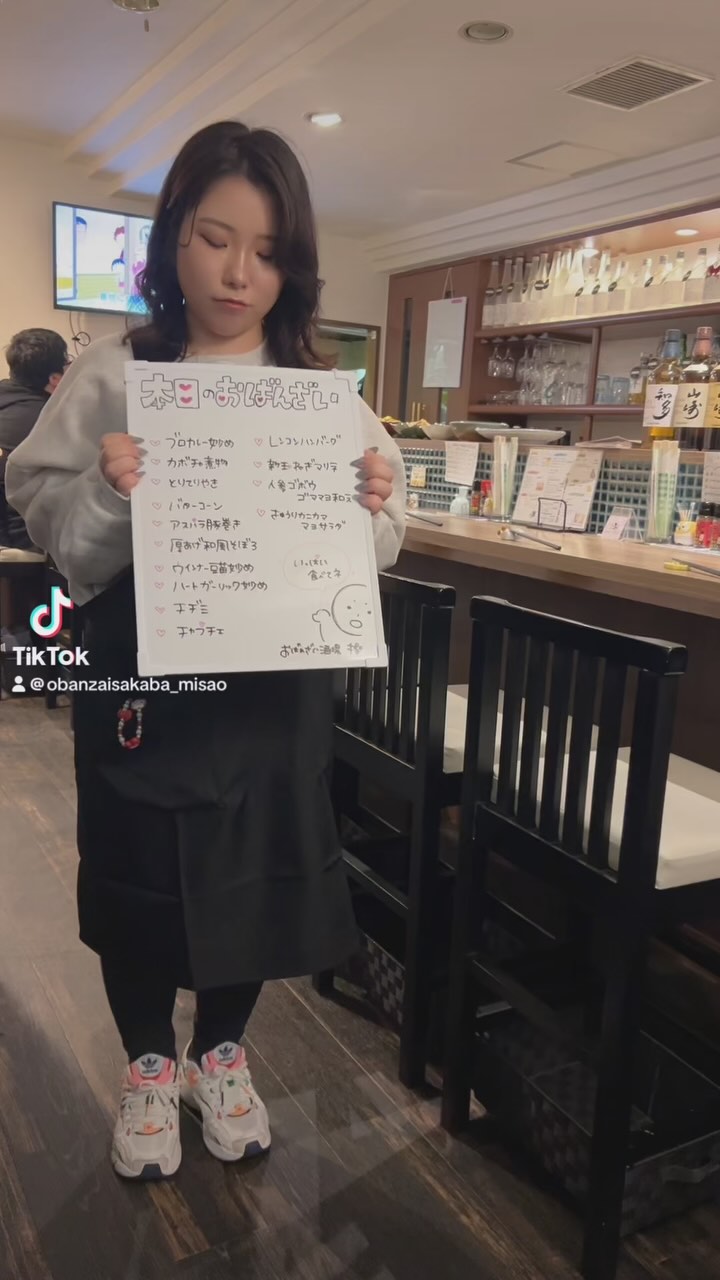 本日のおばんざい
ブロカレー炒め
カボチャ煮物
とりてりやき
バターコーン
アスパラ豚巻き
厚あげ和風そぼろ
ウインナー豆苗炒め
ハートガーリック炒め
チヂミ
チャプチェ
レンコンハンバーグ
新玉ねぎマリネ
人参ゴボウ
ゴママヨ和え
きゅうりカニカマ
マヨサラダ
いっぱい
食べてネ
おばんざい酒場 操
TikTok
@obanzaisakaba_misao
知多
山崎